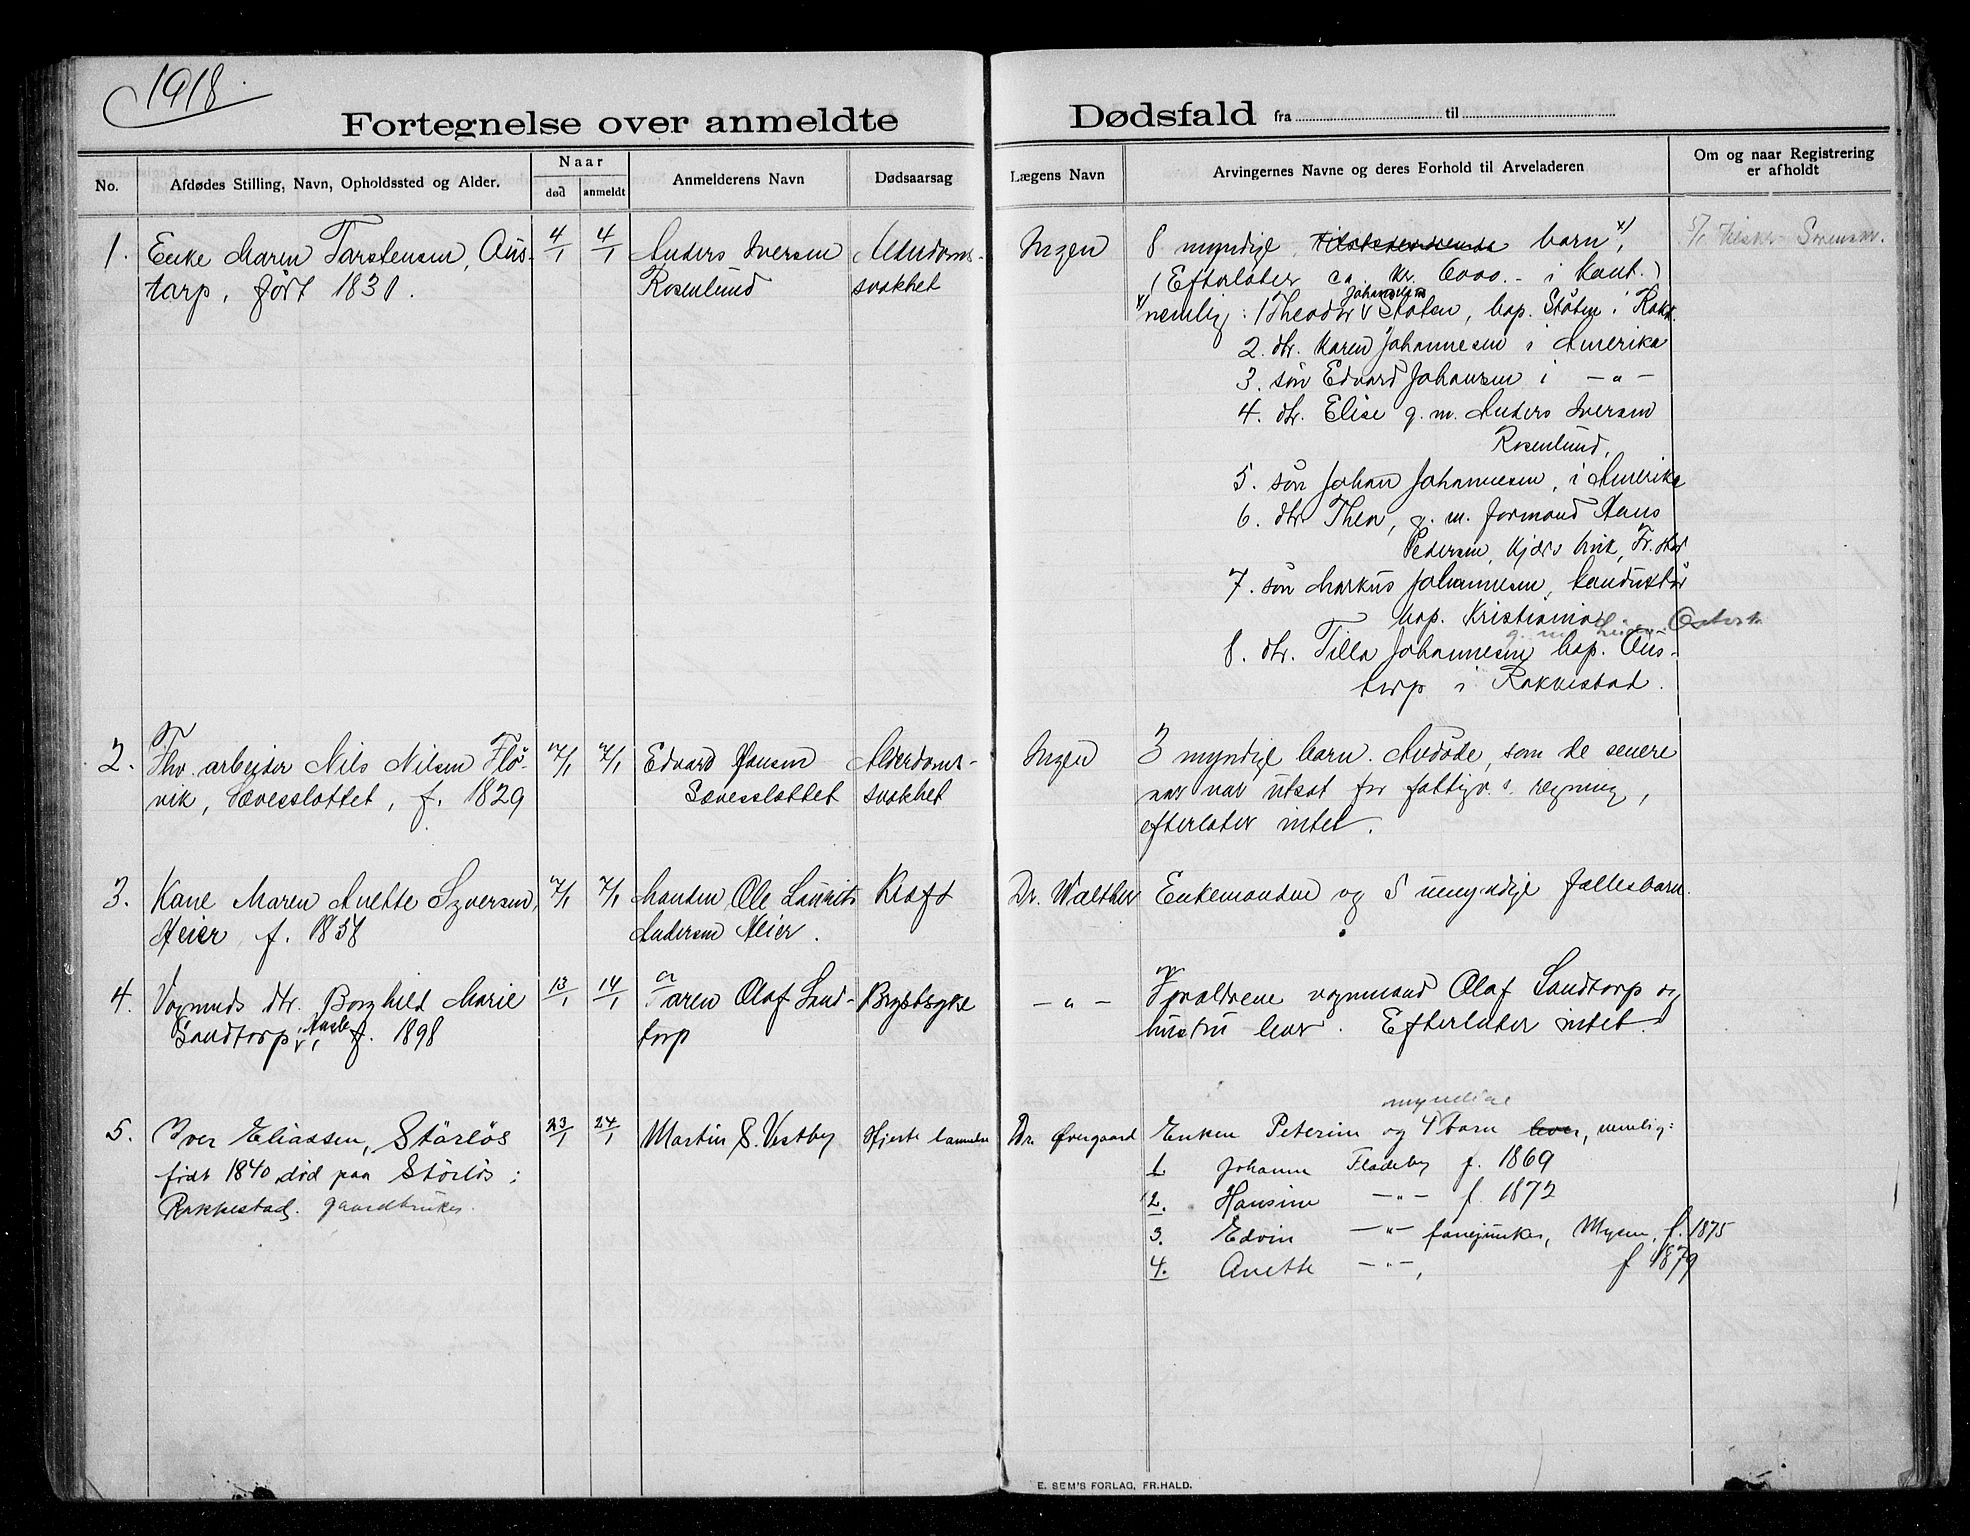 1918.
Fortegnelse over anmeldte Dødsfald fra til
No.
Afdødes Stilling, Navn, Opholdssted og Alder.
Naar
død
anmeldt
Anmelderens Navn
Dødsaarsag
Lægens Navn
Arvingernes Navne og deres Forhold til Arveladeren
Om og naar Registrering
er afholdt
1.
Enke Maren Torstensen, Aus-
torp, født 1831.
4/1
4/1
Anders Iversen
Rosenlund
Alderdoms-
svakhet
Ingen
8 myndige barn x),
(Efterlater ca kr 6000.- i kont.)
x) nemlig: 1 Theodor Johannesen Støten, bop. Støten i Rakk.
2. dtr. Karen Johannesen i Amerika
3. søn Edvard Johansen i - " -
4. dtr. Elise g. m. Anders Iversen
Rosenlund,
5. søn Johan Johannesen, i Amerika
6. dtr Thea, g. m. formand Hans
Pedersen, Kjærs bruk, Fr.stad
7. søn Markus Johannesen, konduktør
bop. Kristiania
g. m.
8. dtr. Tilla Johannesen bop. Aus-
torp i Rakkestad.
2.
Fhv. arbejder Nils Nilsen Flø-
vik, Sævesslottet, f. 1829
7/1
7/1
Edvard Jansen
Sævesslottet
Alderdoms-
svakhet
Ingen
3 myndige barn. Avdøde, som de senere
aar var utsat for fattigv.s. regning,
efterlater intet.
3.
Kone Maren Anette Syversen,
Heier, f. 1858
7/1
7/1
Manden Ole Laurits
Andersen Heier.
Kræft
Dr. Walther
Enkemanden og 5 umyndige fællesbarn.
4.
Vognmds dtr. Borghild Marie
Sandtorp, f. 1898
13/1
14/1
Faren Olaf Sand-
torp
Brystsyke
- " -
Forældrene vognmand Olaf Sandtorp og
hustru lever. Efterlater intet.
5.
Iver Eliassen, Störlös
født 1840, död paa Störlös i
Rakkestad. gaardbruker.
23/1
24/1
Martin S. Vestby
Hjerte lammelse
Dr. Övergaard
myndige
Enken Peterine og 4 barn lever, nemlig:
1. Johanne Fladeby f. 1869
2. Hansine - " - f. 1872
3. Edvin - " - fanejunker, Mysen, f. 1875
4. Anette - " -, f 1879
E. SEM'S FORLAG, FR.HALD.